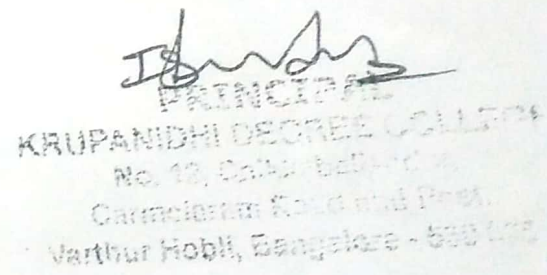 PRINCIPAL
KRUPANIDHI DEGREE COLLEGE
No. 12,
Carmelaram Road and Post,
Varthur Hobli, Bangalore -